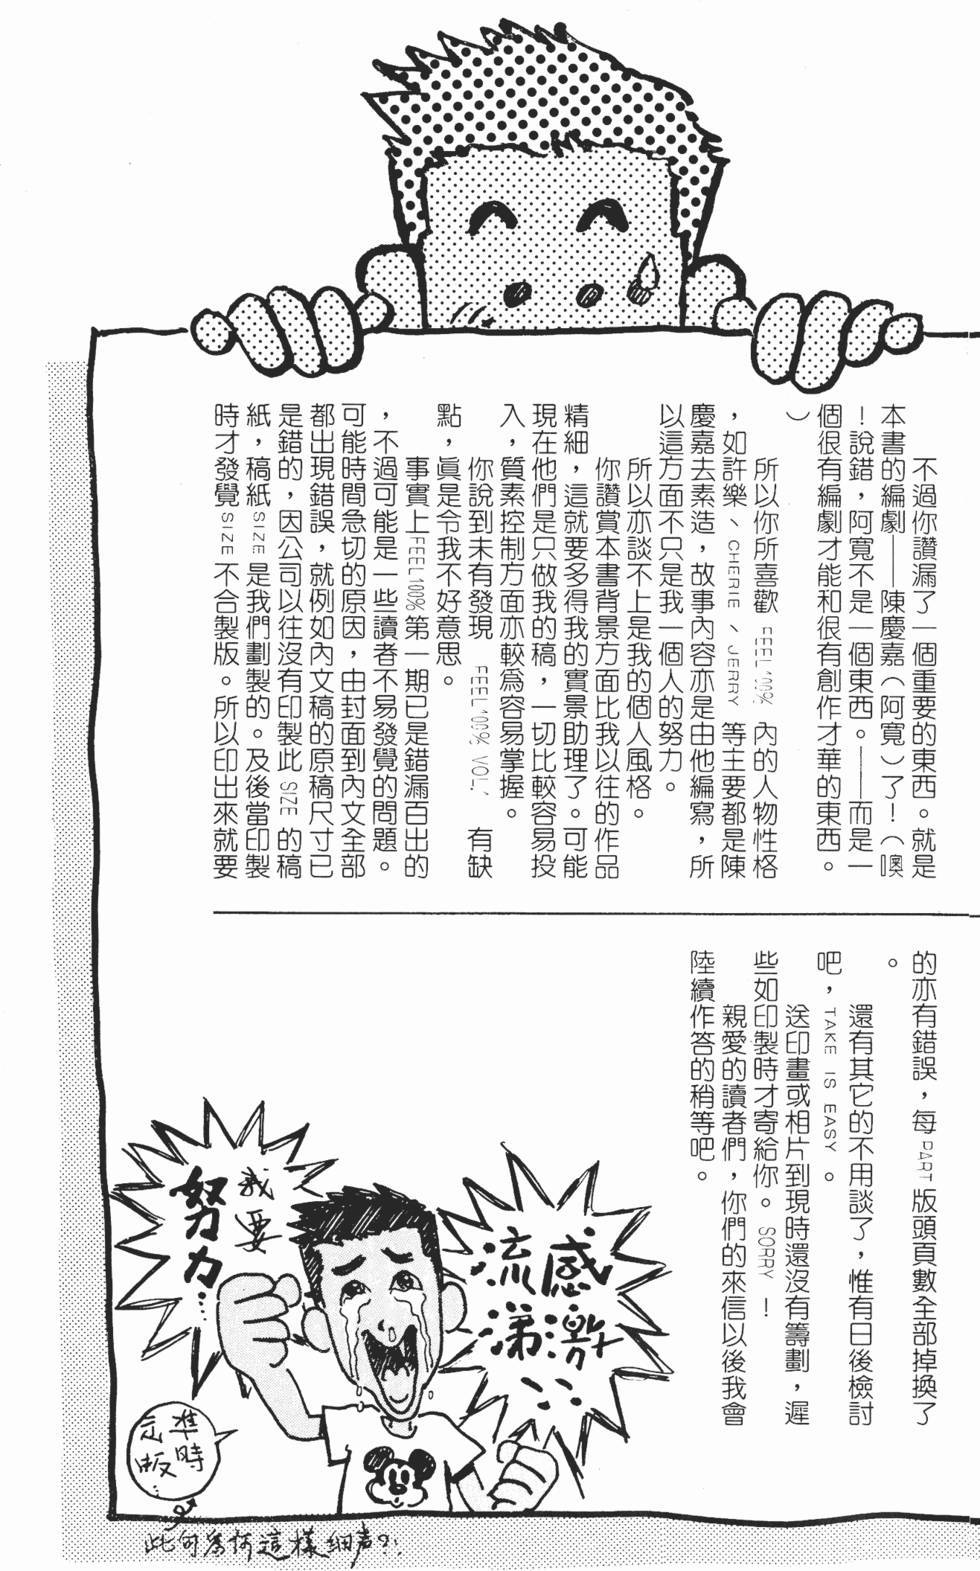 不過你讚漏了一個重要的東西。就是
本書的編劇——陳慶嘉（阿寬）了！（噢
！說錯，阿寬不是一個東西。——而是一
個很有編劇才能和很有創作才華的東西。
）
所以你所喜歡 FEEL 100% 內的人物性格
，如許樂、CHERIE、JERRY 等主要都是陳
慶嘉去素造，故事內容亦是由他編寫，所
以這方面不只是我一個人的努力。
所以亦談不上是我的個人風格。
你讚賞本書背景方面比我以往的作品
精細，這就要多得我的實景助理了。可能
現在他們是只做我的稿，一切比較容易投
入，質素控制方面亦較為容易掌握。
你說到未有發現 FEEL 100% VOL.1 有缺
點，眞是令我不好意思。
事實上FEEL 100%第一期已是錯漏百出的
，不過可能是一些讀者不易發覺的問題。
可能時間急切的原因，由封面到內文全部
都出現錯誤，就例如內文稿的原稿尺寸已
是錯的，因公司以往沒有印製此 SIZE 的稿
紙，稿紙 SIZE 是我們劃製的。及後當印製
時才發覺 SIZE 不合製版。所以印出來就要
的亦有錯誤，每PART版頭頁數全部掉換了
。
還有其它的不用談了，惟有日後檢討
吧，TAKE IS EASY。
送印畫或相片到現時還沒有籌劃，遲
些如印製時才寄給你。SORRY！
親愛的讀者們，你們的來信以後我會
陸續作答的稍等吧。
感激
流涕…
我要
努力…
準時
交版…
此句為何這樣細声?!